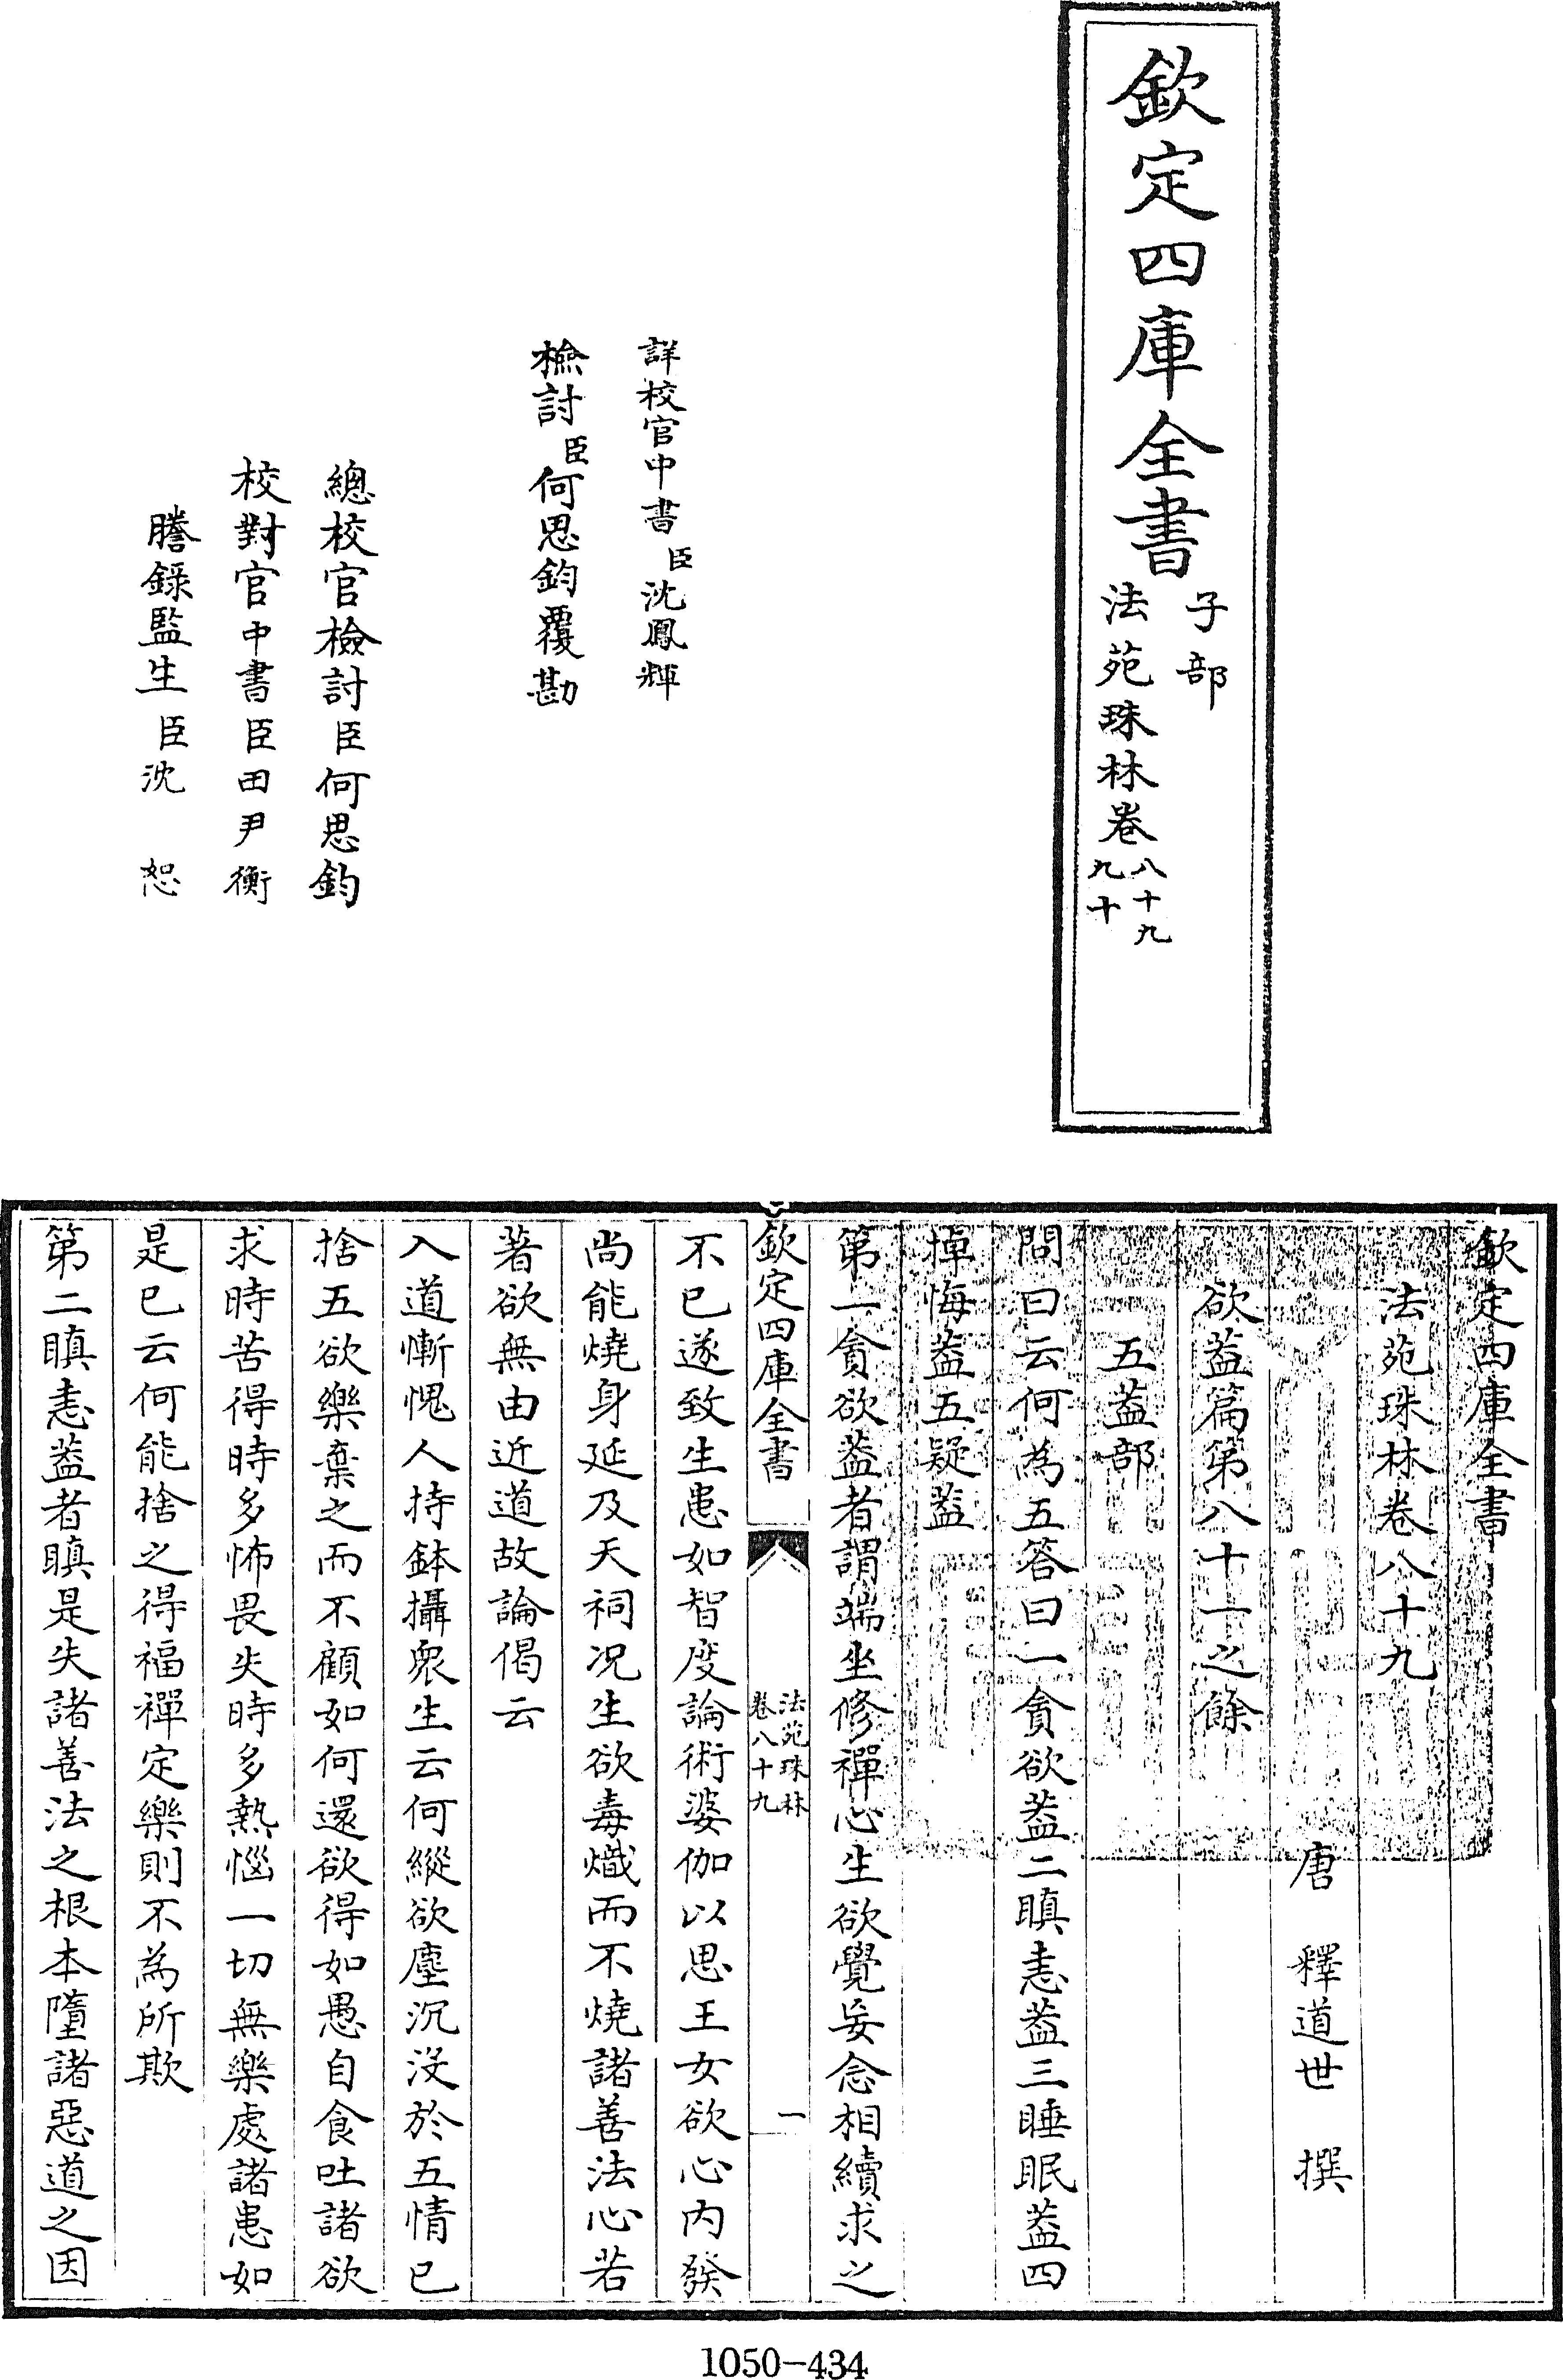 欽定四庫全書
子部
法苑珠林卷
八十九
九十
詳校官中書臣沈鳳輝
檢討臣何思鈞覆勘
總校官檢討臣何思鈞
校對官中書臣田尹衡
謄錄監生臣沈恕
欽定四庫全書
法苑珠林卷八十九
唐 釋道世 撰
欲蓋篇第八十一之餘
五蓋部
問曰云何為五答曰一貪欲蓋二瞋恚蓋三睡眠蓋四
掉悔蓋五疑蓋
第一貪欲蓋者謂端坐修禪心生欲覺妄念相續求之
欽定四庫全書
法苑珠林
卷八十九
一
不已遂致生患如智度論術婆伽以思王女欲心內發
尚能燒身延及天祠况生欲毒熾而不燒諸善法心若
著欲無由近道故論偈云
入道慚愧人持鉢攝衆生云何縱欲塵沉沒於五情已
捨五欲樂棄之而不顧如何還欲得如愚自食吐諸欲
求時苦得時多怖畏失時多熱惱一切無樂處諸患如
是已云何能捨之得福禪定樂則不為所欺
第二瞋恚蓋者瞋是失諸善法之根本墮諸惡道之因
1050-434